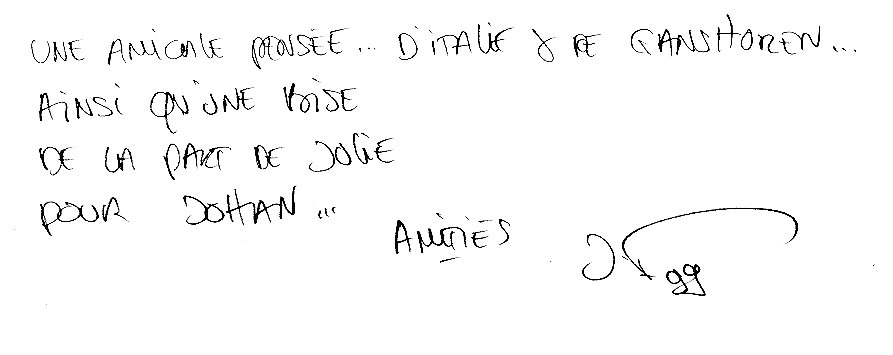 UNE AMICALE PENSÉE... D'ITALIE & DE GANSHOREN...
AINSI QU'UNE BISE
DE LA PART DE JOLIE
POUR JOHAN...
AMITIÉS
99